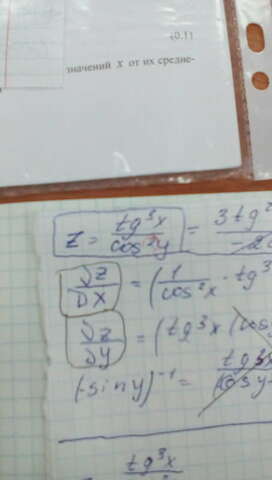 (0.1)
значений x от их средне-
z = tg³x / cos²y = 3tg²
∂z/∂x = (1/cos²x · tg³
∂z/∂y = (tg³x (cos
(-sin y)⁻¹ = tg³x / cos y
tg³x